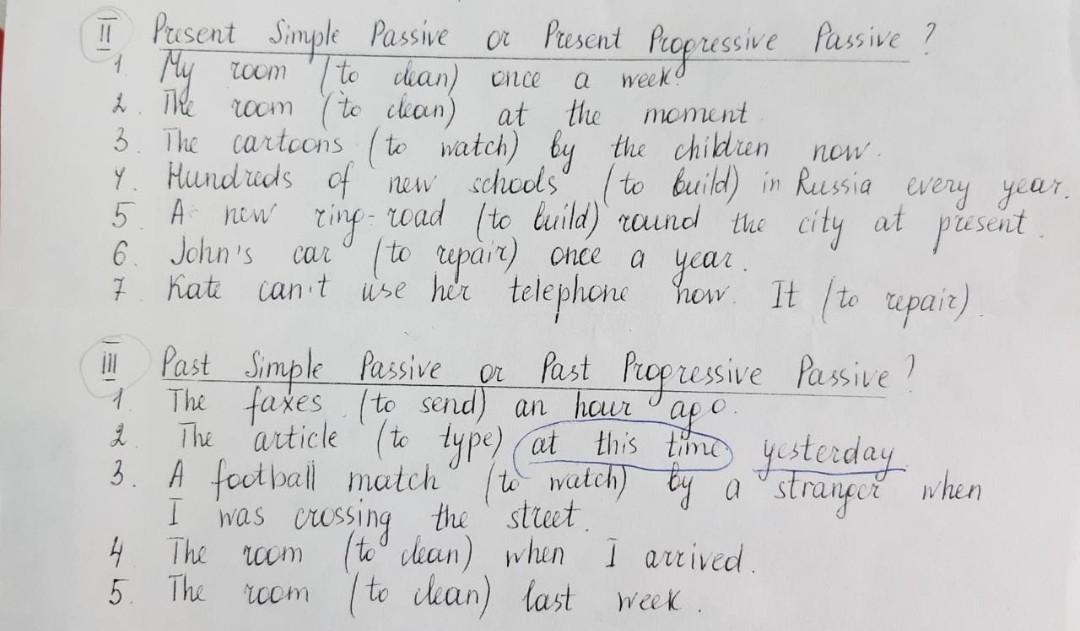 II Present Simple Passive or Present Progressive Passive ?
1. My room (to clean) once a week.
2. The room (to clean) at the moment
3. The cartoons (to watch) by the children now.
4. Hundreds of new schools (to build) in Russia every year.
5. A new ring-road (to build) round the city at present.
6. John's car (to repair) once a year.
7. Kate can't use her telephone now. It (to repair).
III Past Simple Passive or Past Progressive Passive ?
1. The faxes (to send) an hour ago.
2. The article (to type) at this time yesterday.
3. A football match (to watch) by a stranger when
I was crossing the street.
4 The room (to clean) when I arrived.
5. The room (to clean) last week.